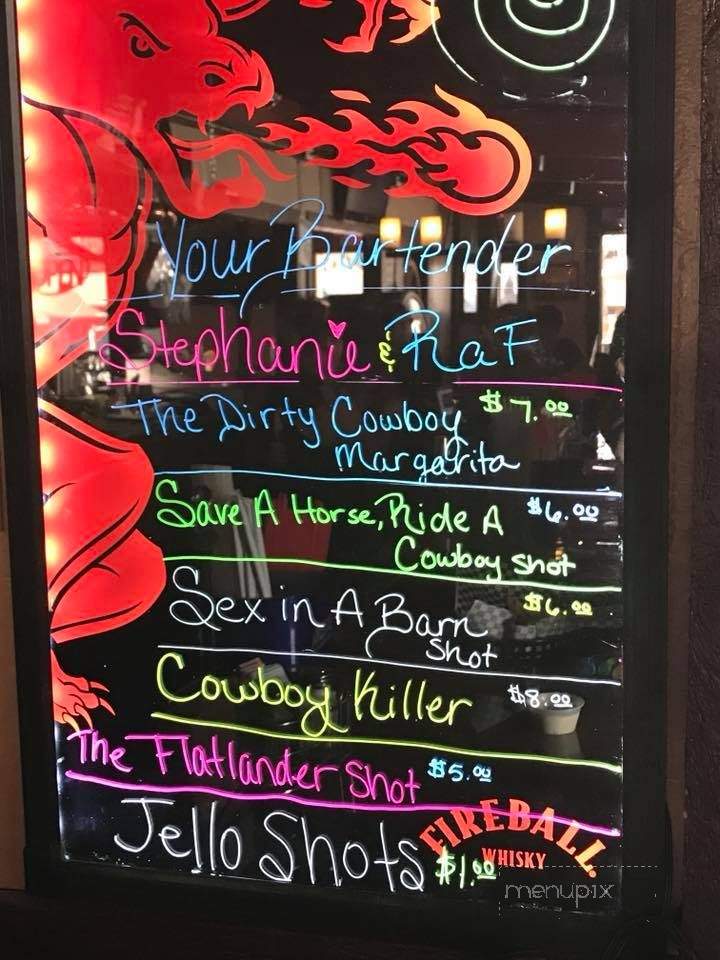 Your Bartender
Stephanie & RaF
The Dirty Cowboy $7.00
Margarita
Save A Horse, Ride A $6.00
Cowboy Shot
Sex in A Barn $6.00
Shot
Cowboy Killer $8.00
The Flatlander Shot $5.00
Jello Shots $1.00
FIREBALL
WHISKY
menupix